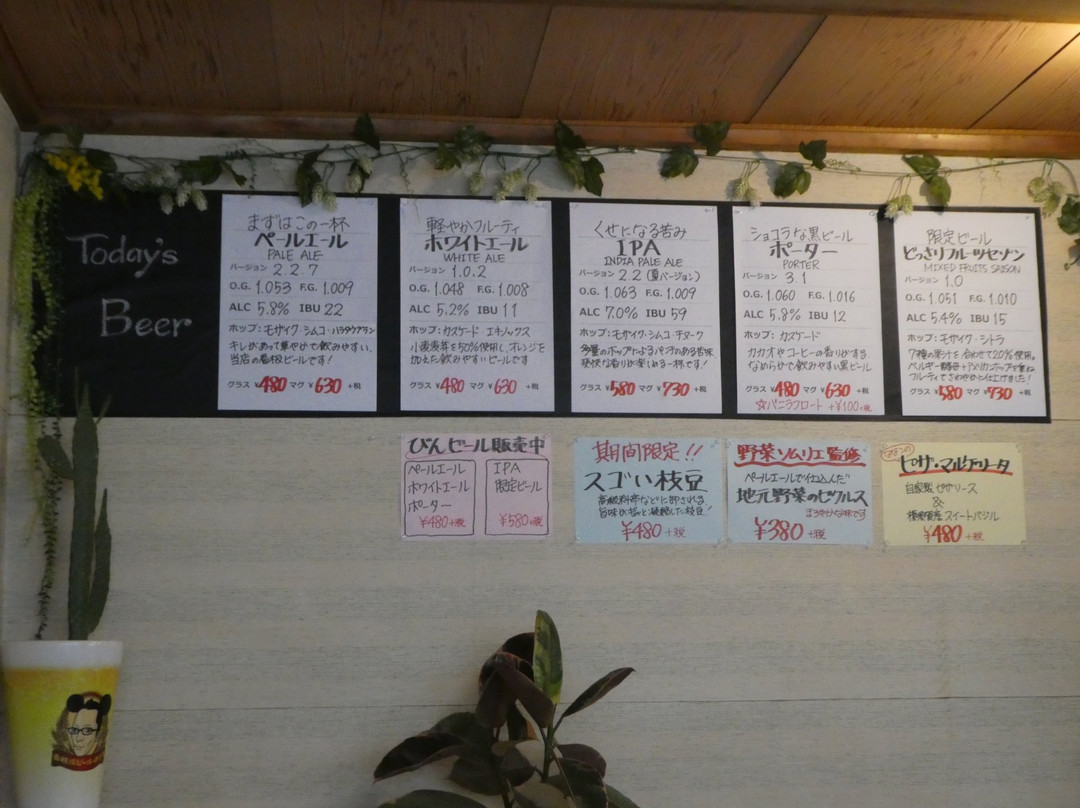 Today's
Beer
まずはこの一杯
ペールエール
PALE ALE
バージョン 2.2.7
O.G. 1.053 F.G. 1.009
ALC 5.8% IBU 22
ホップ:モザイク・シムコ・
キレがあって華やかで飲みやすい、
当店の看板ビールです!
グラス ¥480 マグ ¥630 +税
軽やかフルーティ
ホワイトエール
WHITE ALE
バージョン 1.0.2
O.G. 1.048 F.G. 1.008
ALC 5.2% IBU 11
ホップ:カスケード エキノックス
小麦麦芽を50%使用し、オレンジを
加えた飲みやすいビールです
グラス ¥480 マグ ¥630 +税
くせになる苦み
IPA
INDIA PALE ALE
バージョン 2.2(夏バージョン)
O.G. 1.063 F.G. 1.009
ALC 7.0% IBU 59
ホップ:モザイク・シムコ・チヌーク
多量のホップによるパンチのある苦味、
爽快な香りが楽しめる一杯です!
グラス ¥580 マグ ¥730 +税
ショコラな黒ビール
ポーター
PORTER
バージョン 3.1
O.G. 1.060 F.G. 1.016
ALC 5.8% IBU 12
ホップ:カスケード
カカオやコーヒーの香りがする、
なめらかで飲みやすい黒ビール
グラス ¥480 マグ ¥630 +税
☆バニラフロート +¥100+税
限定ビール
どっさりフルーツセゾン
MIXED FRUITS SAISON
バージョン 1.0
O.G. 1.051 F.G. 1.010
ALC 5.4% IBU 15
ホップ:モザイク・シトラ
7種の果汁を合わせて20%使用。
ベルギー酵母+アメリカホップで
フルーティでさわやかに仕上げました!
グラス ¥580 マグ ¥730 +税
びんビール販売中
ペールエール
ホワイトエール
ポーター
¥480+税
IPA
限定ビール
¥580+税
期間限定!!
スゴい枝豆
高級料亭などに卸される
旨味がギュッと凝縮した枝豆!
¥480+税
野菜ソムリエ監修
ペールエールで仕込んだ
地元野菜のピクルス
¥380+税
ピザ・マルゲリータ
自家製ピザソース
&
スイートバジル
¥480+税